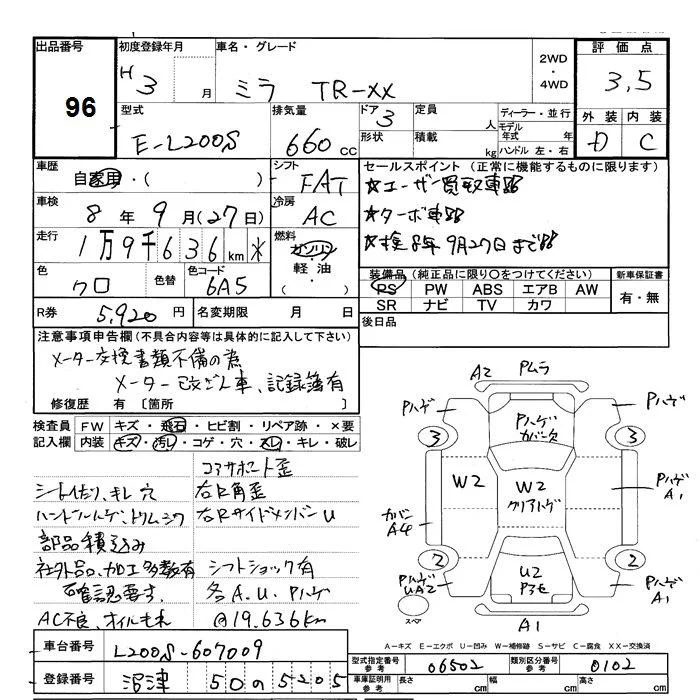 出品番号
96
初度登録年月
H 3 月
車名・グレード
ミラ TR-XX
2WD
・
4WD
評価点
3,5
外装 内装
D C
型式
E-L200S
排気量
660 cc
ドア 3
形状
定員 人
積載 kg
ディーラー・並行
モデル年式 年
ハンドル 左・右
車歴
自家用・( )
シフト
FAT
セールスポイント (正常に機能するものに限ります)
☆ユーザー買取車
☆ターボ車
☆検8年9月27日まで
車検
8年 9月(27日)
冷房
AC
走行
1万9千636km ✕
燃料
ガソリン
軽油
・( )
色
クロ
色替
色コード
6A5
装備品 (純正品に限り○をつけてください)
PS PW ABS エアB AW
SR ナビ TV カワ
新車保証書
有・無
R券 5,920円
名変期限 月 日
後日品
注意事項申告欄(不具合内容等は具体的に記入して下さい)
メーター交換書類不備の為
メーター改ざん車、記録簿有
修復歴 有 〔箇所 〕
検査員 FW キズ・飛石・ヒビ割・リペア跡・×要
記入欄 内装 キズ・汚れ・コゲ・穴・スレ・キレ・破レ
コアサポート歪
シートへたり、キレ 穴
右R角歪
ハンドルハゲ、トリムシワ
右RサイドメンバーU
部品積込み
社外品、加工多数有
シフトショック有
確認要す。
各A.U.Pハゲ
AC不良、オイルもれ
@19.636km
A2 Pムラ
Pハゲ
Pハゲ
Pハゲ
カバー欠
3
3
W2
W2
クリアハゲ
Pハゲ
A1
カバー
A4
2
2
Pハゲ
UA2
U2
Pハゲ
A1
スペア
A1
A-キズ E-エクボ U-凹み W-補修跡 S-サビ C-腐食 XX-交換済
車台番号 L200S-607009
登録番号 沼津 50 の 5205
型式指定番号
参考
06502
類別区分番号
参考
0102
車庫証明用
参考
長さ cm
幅 cm
高さ cm